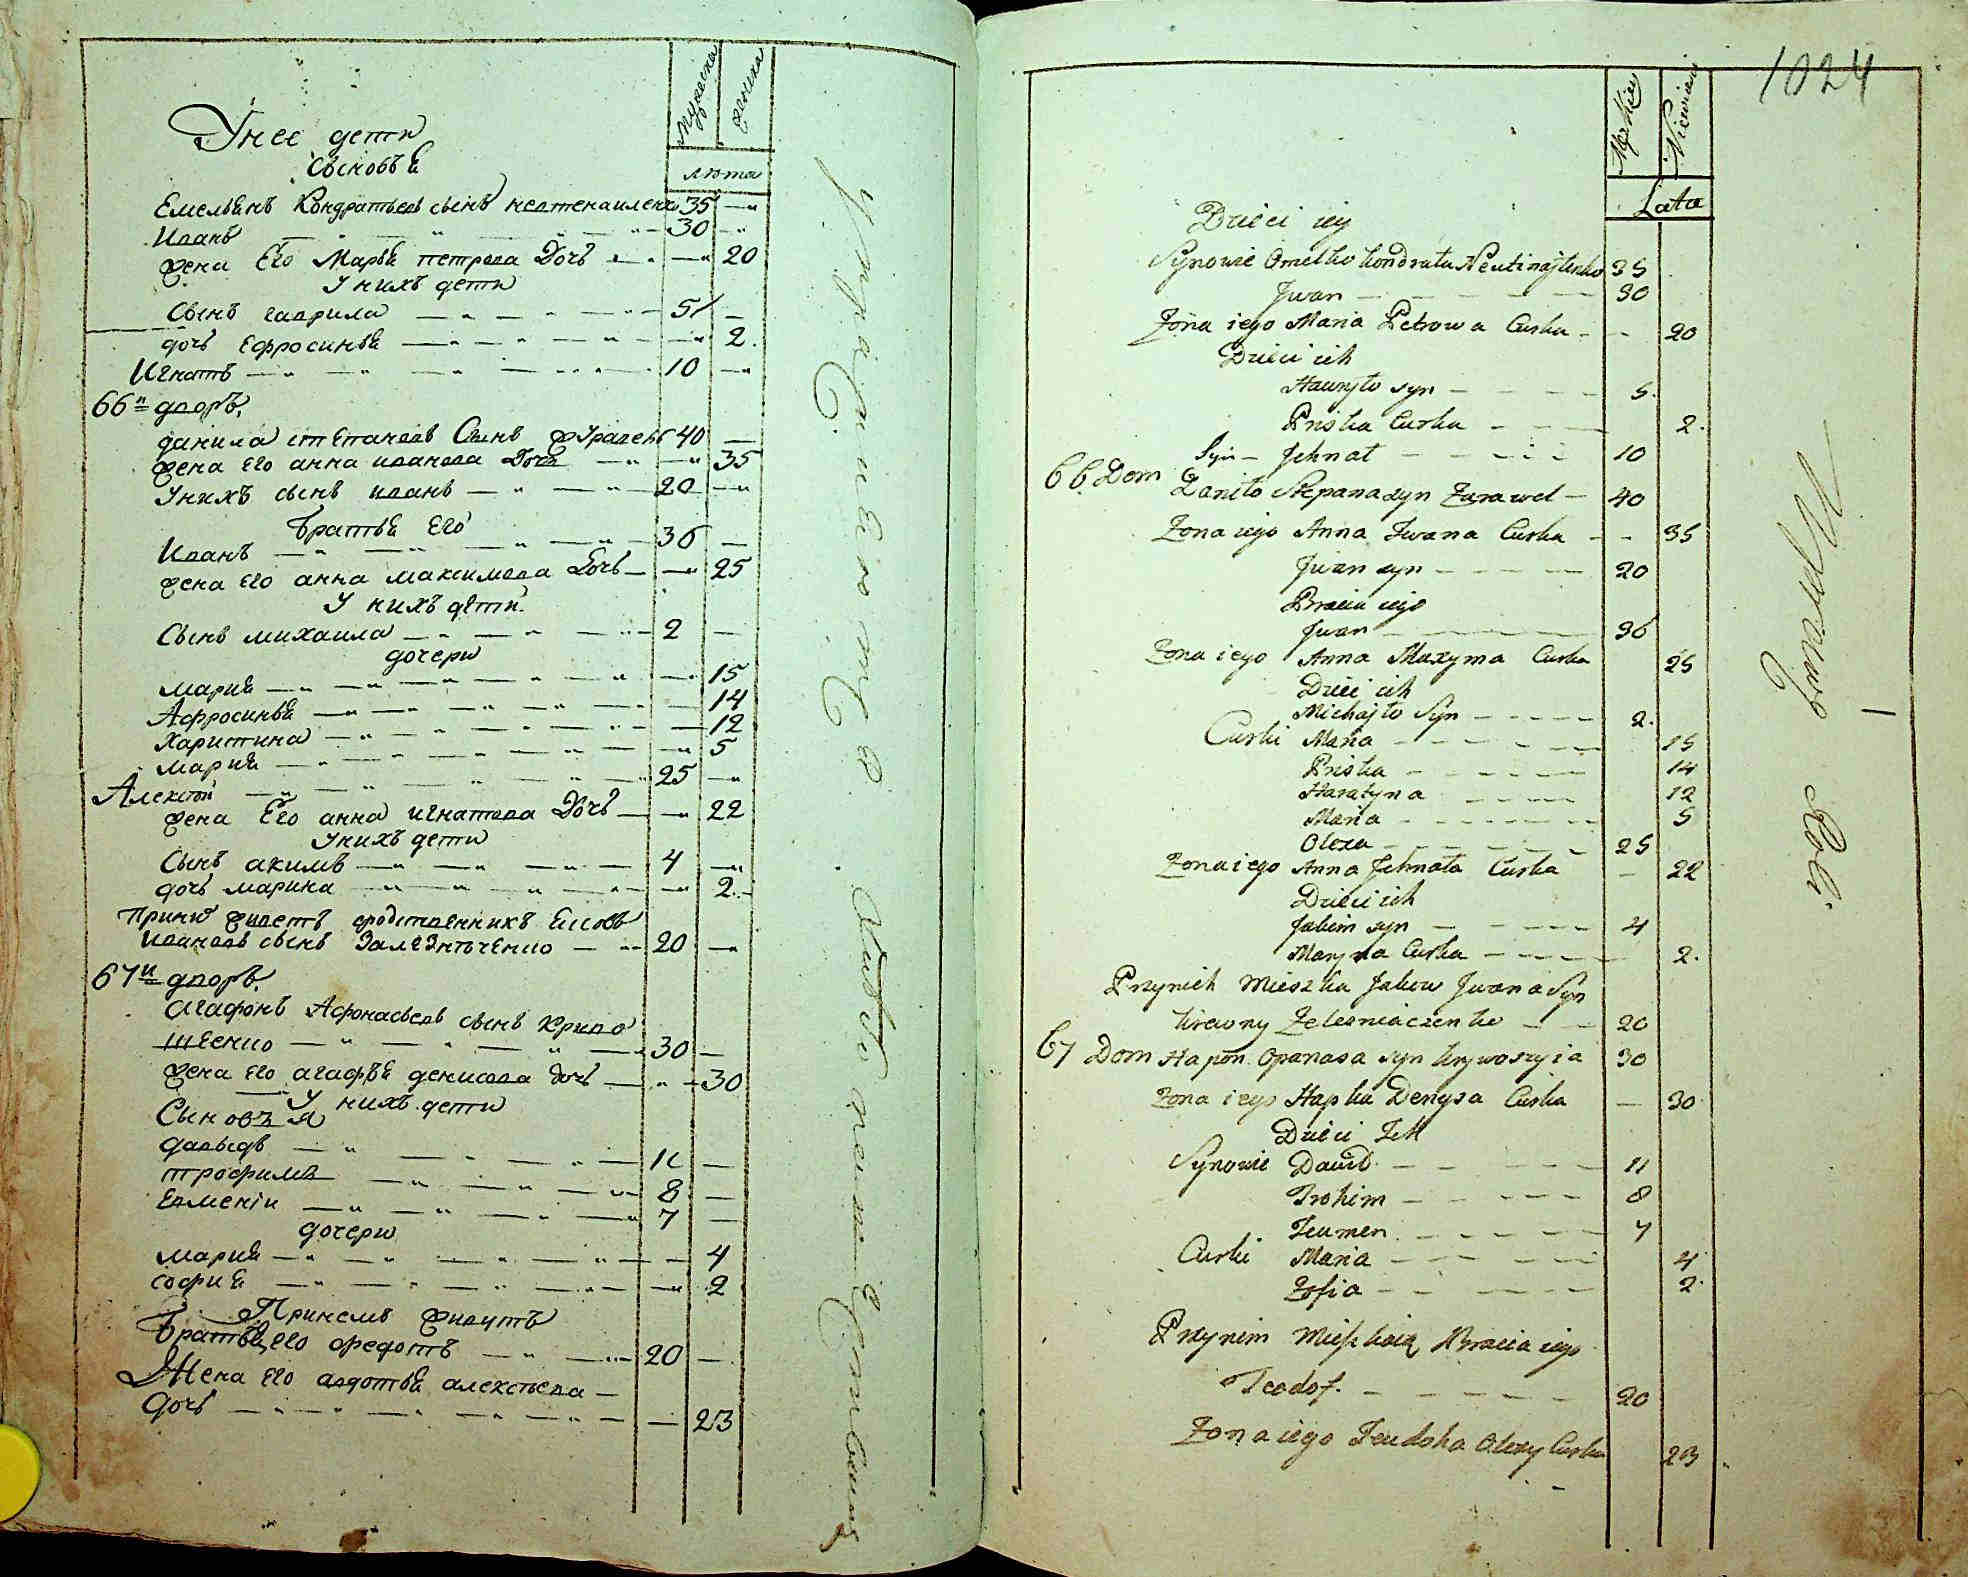 Мужеска женска
лѣта
У нее дети
Сыновья
Емельянъ Кондратьевъ сынъ 35 —
Иванъ — 30 —
жена Его Марья петрова Дочь — 20
У нихъ дети
Сынъ гаврила — 5 —
дочь Ефросинья — 2
Игнатъ — 10 —
66й дворъ.
данила степановъ Сынъ 40 —
жена Его анна иванова Дочь — 35
У нихъ сынъ иванъ — 20 —
Братья Его
Иванъ — 36 —
жена Его анна максимова Дочь — 25
У нихъ дети
Сынъ михаила — 2 —
дочери
мария — 15
Афросинья — 14
Харитина — 12
мария — 5
Алексей — 25 —
жена Его анна игнатова Дочь — 22
У нихъ дети
Сынъ акимъ — 4 —
дочь марина — 2
сродственникъ
Ивановъ сынъ 20 —
67й дворъ.
агафонъ Афонасьевъ сынъ Криво
шеенко — 30 —
жена Его агафья денисова дочь — 30
У нихъ дети
Сыновья
давыдъ — 11 —
трофимъ — 8 —
Евмений — 7 —
дочери
мария — 4
софия — 2
При немъ живутъ
Братья Его федотъ — 20 —
Жена Его авдотья алексѣева —
дочь — 23
1024
Męzkie Niewieście
Lata
Dzieci iey
Synowie Omelko Kondrata 35
Jwan — 30
Zona iego Maria Petrowa Curka — 20
Dzieci ich
Hawryło syn — 5
Priska Curka — 2
Syn — Jehnat — 10
66 Dom Daniło Stepana syn Zurawel — 40
Zona iego Anna Iwana Curka — 35
Jwan syn — 20
Bracia iego
Jwan — 36
Zona iego Anna Maxyma Curka 25
Dzieci ich
Michajło Syn — 2
Curki Maria — 15
Priska — 14
Haratyna — 12
Maria — 5
Olexa — 25
Zona iego Anna Jehnata Curka — 22
Dzieci ich
Jakim syn — 4
Maryna Curka — 2
Przynich Mieszka Jakow Jwana Syn
krewny Zelezniaczenko — 20
67 Dom Hapon Opanasa syn Krywoszyia 30
Zona iego Hapka Denysa Curka — 30
Dzieci Ich
Synowie Dawid — 11
Trohim — 8
Jeumen — 7
Curki Maria — 4
Zofia — 2
Przynim Mieszkaią Bracia iego
Teodos. — 20
Zona iego Jeudoha Olexy Curka 23